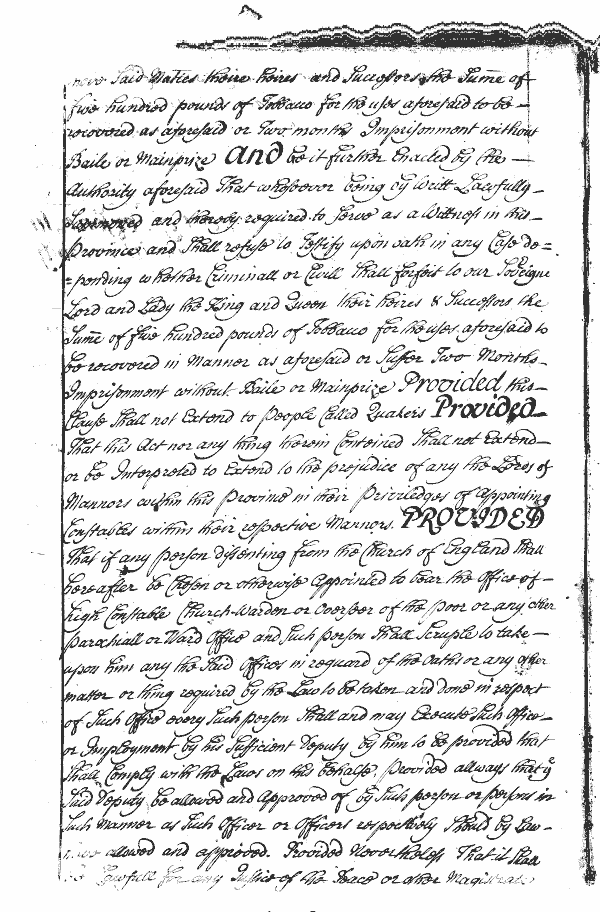 Said Maties theire heires and Successors the Sume of
five hundred pounds of Tobacco for the uses aforesaid to be
recovered as aforesaid or Two months Imprisonment without
Baile or Mainprize And be it further Enacted by the
Authority aforesaid That whosoever being by Writt Lawfully
Sumoned and thereby required to Serve as a Wittness in this
Province and Shall refuse to Testify upon oath in any Case de=
=pending whether Criminall or Civill Shall forfeit to our Soveigne
Lord and Lady the King and Queen their heires & Successors the
Sume of five hundred pounds of Tobbacco for the uses aforesaid to
be recovered in Manner as aforesaid or Suffer Two Months
Imprisonment without Baile or Mainprize Provided this
Clause Shall not Extend to People Called Quakers Provided
That this Act nor any thing therein Conteined Shall not Extend
or be Interpreted to Extend to the prejudice of any the Lords of
Mannors within this Province in their Priviledges of appointing
Constables within their respective Mannors. PROVIDED
That if any Person dissenting from the Church of England Shall
hereafter be Chosen or otherwise Appointed to bear the Office of
high Constable Church-Warden or Overseer of the poor or any other
Parochiall or Ward Office and Such person Shall Scruple to take
upon him any the Said Offices in reguard of the Oaths or any other
matter or thing required by the Law to be taken and done in respect
of Such Office every Such person Shall and may Execute Such Office
or Imployment by his Sufficient Deputy by him to be provided that
Shall Comply with the Laws on this behalfe, Provided allways that ye
Said Deputy be allowed and Approved of by Such person or persons in
Such Manner as Such Officer or Officers respectively Should by Law
have allowed and approved. Provided Nevertheless That it Shall
be Lawfull for any Justice of the Peace or other Magistrate